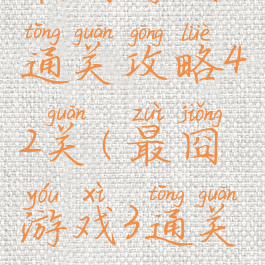 tōng guān gōng lüè
通关攻略4
guān zuì jiǒng
2关(最囧
yóu xì tōng guān
游戏3通关